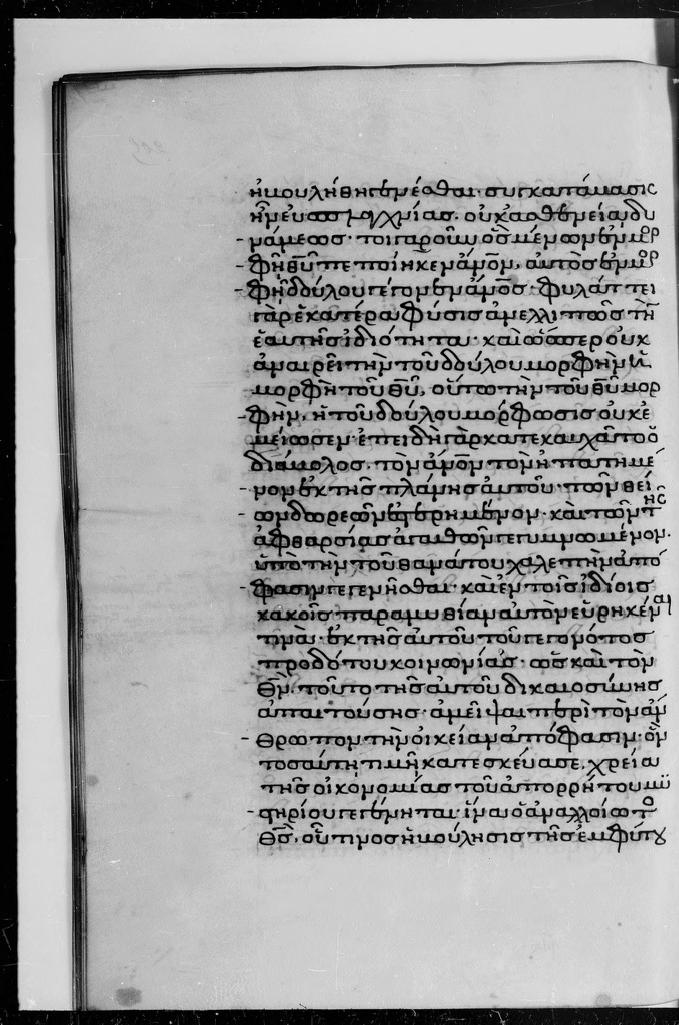 ἠβουλήθη γενέσθαι· συγκατάβασις
ἦν εὐσπλαγχνίας. οὐκ ἀσθένεια δυ
νάμεως· τοιγαροῦν ὃς μένων ἐν μορ
φῇ θῦ πεποίηκεν ἄνον, αὐτὸς ἐν μορ
φῇ δούλου γέγονεν ἄνος· φυλάττει
γὰρ ἑκατέρα φύσις ἀνελλιπῶς τὴν
ἑαυτῆς ἰδιότητα· καὶ ὥσπερ οὐκ
ἀναιρεῖ τὴν τοῦ δούλου μορφὴν ἡ
μορφὴ τοῦ θῦ, οὕτω τὴν τοῦ θῦ μορ
φὴν, ἡ τοῦ δούλου μόρφωσις οὐκ ἐ
μείωσεν· ἐπειδὴ γὰρ κατεκαυχᾶτο ὁ
διάβολος, τὸν ἄνον τὸν ἠπατημέ
νον ἐκ τῆς πλάνης αὐτοῦ· τῶν θεί
ων δωρεῶν ἐστερημένον· καὶ τῶν τῆς
ἀφθαρσίας ἀγαθῶν γεγυμνωμένον·
ὑπὸ τὴν τοῦ θανάτου χαλεπὴν ἀπό
φασιν γεγενῆσθαι· καὶ ἐν τοῖς ἰδίοις
κακοῖς παραμυθίαν αὐτὸν εὑρηκέναι
τινὰ· ἐκ τῆς αὐτοῦ τοῦ γεγονότος
προδότου κοινωνίας· ὡς καὶ τὸν
θν, τοῦτο τῆς αὐτοῦ δικαιοσύνης
ἀπαιτούσης· ἀμεῖψαι περὶ τὸν ἄν
θρωπον τὴν οἰκείαν ἀπόφασιν· ὃν
τοσαύτη τιμῇ κατεσκεύασε, χρεία
τῆς οἰκονομίας τοῦ ἀπορρήτου μυ
στηρίου γεγένηται· ἵνα ὁ ἀναλλοίωτο
θς, οὗτινος ἡ βούλησις τῆς ἐμφύτου